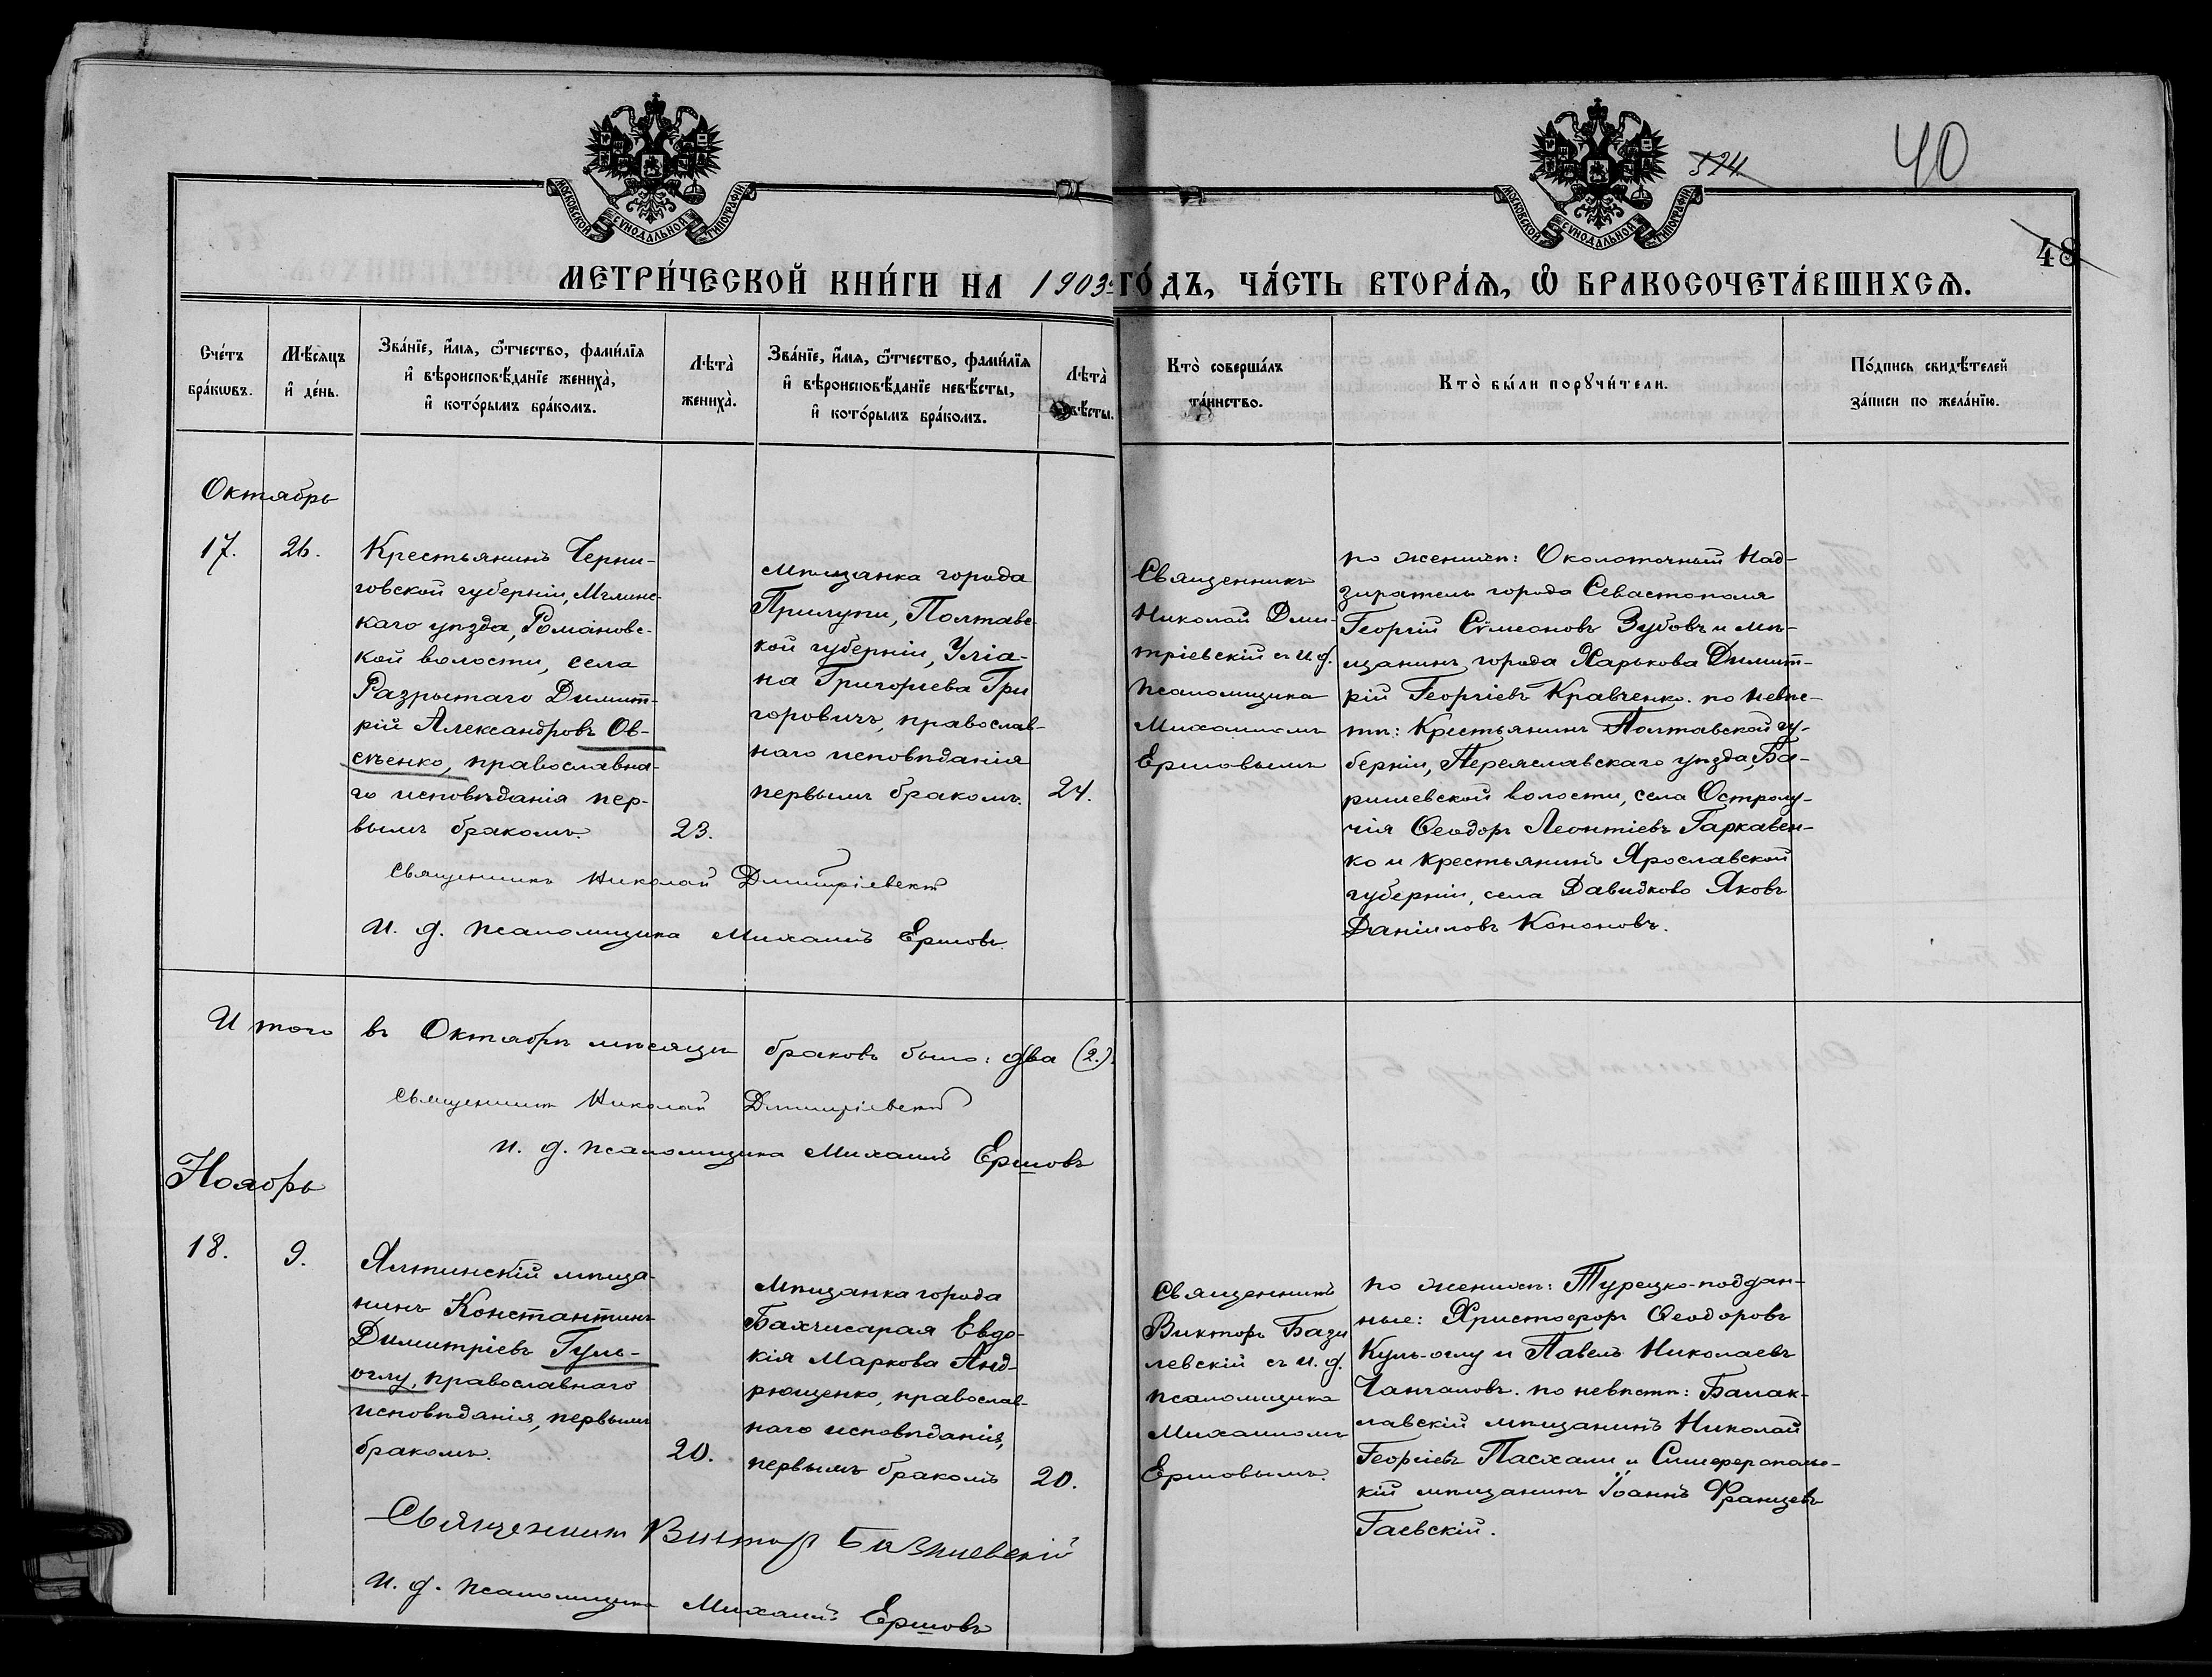 МОСКОВСКОЙ СѴНОДАЛЬНОЙ ТИПОГРАФІИ
МОСКОВСКОЙ СѴНОДАЛЬНОЙ ТИПОГРАФІИ
524
40
48
МЕТРИ́ЧЕСКОЙ КНИ́ГИ НА 1903 ГО́ДЪ, ЧА́СТЬ ВТОРА́Ѧ, Ѿ БРАКОСОЧЕТА́ВШИХСѦ.
Сче́тъ
бра́кѡвъ.
Мѣ́сѧцъ
и҆ де́нь.
Зва́нїе, и҆́мѧ, ѻ҆́тчество, фами́лїѧ
и҆ вѣроисповѣ́данїе жениха̀,
и҆ кото́рымъ бра́комъ.
Лѣта̀
жениха̀.
Зва́нїе, и҆́мѧ, ѻ҆́тчество, фами́лїѧ
и҆ вѣроисповѣ́данїе невѣ́сты,
и҆ кото́рымъ бра́комъ.
Лѣта̀
невѣ́сты.
Кто̀ соверша́лъ
та́инство.
Кто̀ бы́ли порꙋчи́тели.
По́дпись свидѣ́телей
за́писи по жела́нїю.
Октябрь
17.
26.
Крестьянинъ Черни-
говской губерніи, Мглинс-
каго уѣзда, Романовс-
кой волости, села
Разрытаго Димит-
рій Александровъ Ов-
сѣенко, православна-
го исповѣданія пер-
вымъ бракомъ.
23.
Мѣщанка города
Прилуки, Полтавс-
кой губерніи, Уліа-
на Григорьева Гри
горовичъ, православ-
наго исповѣданія
первымъ бракомъ.
24.
Священникъ
Николай Дми-
тріевскій съ и. д.
псаломщика
Михаиломъ
Ершовымъ
по женихѣ: Околоточный Над-
зиратель города Севастополя
Георгій Сѵмеоновъ Зубовъ и мѣ-
щанинъ города Харькова Димит-
рій Георгіевъ Кравченко. по невѣс-
тѣ: Крестьянинъ Полтавской гу-
берніи, Переяславскаго уѣзда, Ба-
ришевской волости, села Остролу-
чія Ѳеодоръ Леонтіевъ Гаркавен-
ко и крестьянинъ Ярославской
губерніи, села Давидково Яковъ
Даніиловъ Кононовъ.
Священникъ Николай Дмитріевскій
И. д. псаломщика Михаилъ Ершовъ.
Итого въ Октябрѣ мѣсяцѣ браковъ было: два (2.).
Священникъ Николай Дмитріевскій
И. д. псаломщика Михаилъ Ершовъ
Ноябрь
18.
9.
Ялтинскій мѣща-
нинъ Константинъ
Димитріевъ Гуль-
оглу, православнаго
исповѣданія, первымъ
бракомъ.
20.
Мѣщанка города
Бахчисарая Евдо-
кія Маркова Анд-
рющенко, православ-
наго исповѣданія,
первымъ бракомъ
20.
Священникъ
Викторъ Бази
левскій съ и. д.
псаломщика
Михаиломъ
Ершовымъ.
по женихѣ: Турецко-поддан-
ные: Христофоръ Ѳеодоровъ
Куль-оглу и Павелъ Николаевъ
по невѣстѣ: Балак-
лавскій мѣщанинъ Николай
Георгіевъ Пасхали и Симферополь-
скій мѣщанинъ Іоаннъ Францевъ
Гаевскій.
Священникъ Викторъ Базилевскій
И. д. псаломщика Михаилъ Ершовъ